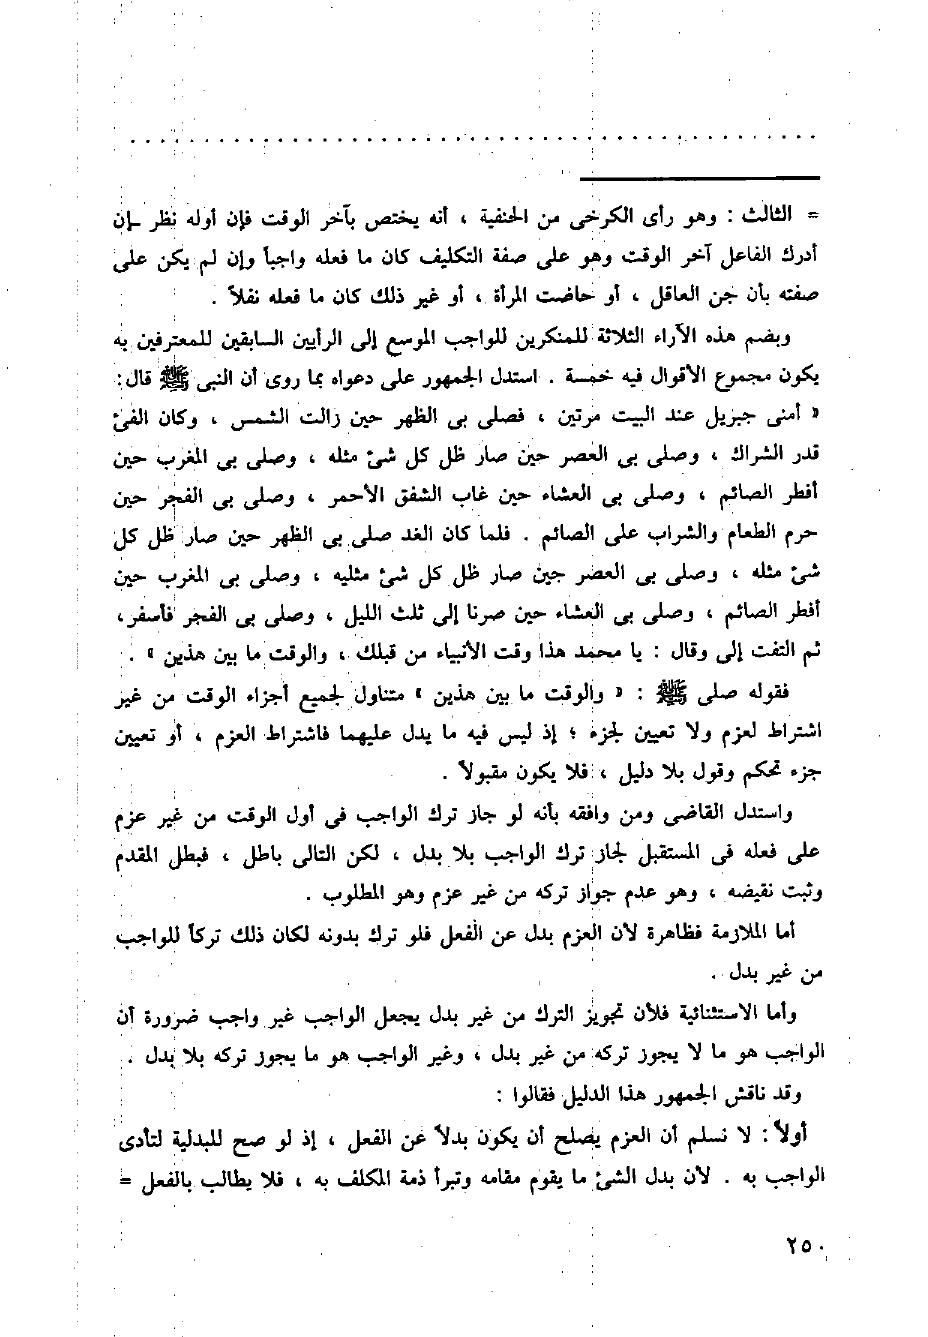 = الثالث : وهو رأى الكرخى من الحنفية ، أنه يختص بآخر الوقت فإن أوله نظر ـ إن
أدرك الفاعل آخر الوقت وهو على صفة التكليف كان ما فعله واجباً وإن لم يكن على
صفته بأن جن العاقل ، أو حاضت المرأة ، أو غير ذلك كان ما فعله نفلاً .
وبضم هذه الآراء الثلاثة للمنكرين للواجب الموسع إلى الرأيين السابقين للمعترفين به
يكون مجموع الأقوال فيه خمسة . استدل الجمهور على دعواه بما روى أن النبى ﷺ قال :
« أمنى جبريل عند البيت مرتين ، فصلى بى الظهر حين زالت الشمس ، وكان الفئ
قدر الشراك ، وصلى بى العصر حين صار ظل كل شئ مثله ، وصلى بى المغرب حين
أفطر الصائم ، وصلى بى العشاء حين غاب الشفق الأحمر ، وصلى بى الفجر حين
حرم الطعام والشراب على الصائم . فلما كان الغد صلى بى الظهر حين صار ظل كل
شئ مثله ، وصلى بى العصر جين صار ظل كل شئ مثليه ، وصلى بى المغرب حين
أفطر الصائم ، وصلى بى العشاء حين صرنا إلى ثلث الليل ، وصلى بى الفجر فأسفر ،
ثم التفت إلى وقال : يا محمد هذا وقت الأنبياء من قبلك ، والوقت ما بين هذين » .
فقوله صلى ﷺ : « والوقت ما بين هذين » متناول لجميع أجزاء الوقت من غير
اشتراط لعزم ولا تعيين لجزء ؛ إذ ليس فيه ما يدل عليهما فاشتراط العزم ، أو تعيين
جزء تحكم وقول بلا دليل ، فلا يكون مقبولاً .
واستدل القاضى ومن وافقه بأنه لو جاز ترك الواجب فى أول الوقت من غير عزم
على فعله فى المستقبل لجاز ترك الواجب بلا بدل ، لكن التالى باطل ، فبطل المقدم
وثبت نقيضه ، وهو عدم جواز تركه من غير عزم وهو المطلوب .
أما الملازمة فظاهرة لأن العزم بدل عن الفعل فلو ترك بدونه لكان ذلك تركاً للواجب
من غير بدل .
وأما الاستثنائية فلأن تجويز الترك من غير بدل يجعل الواجب غير واجب ضرورة أن
الواجب هو ما لا يجوز تركه من غير بدل ، وغير الواجب هو ما يجوز تركه بلا بدل .
وقد ناقش الجمهور هذا الدليل فقالوا :
أولاً : لا نسلم أن العزم يصلح أن يكون بدلاً عن الفعل ، إذ لو صح للبدلية لتأدى
الواجب به . لأن بدل الشئ ما يقوم مقامه وتبرأ ذمة المكلف به ، فلا يطالب بالفعل =
٢٥٠